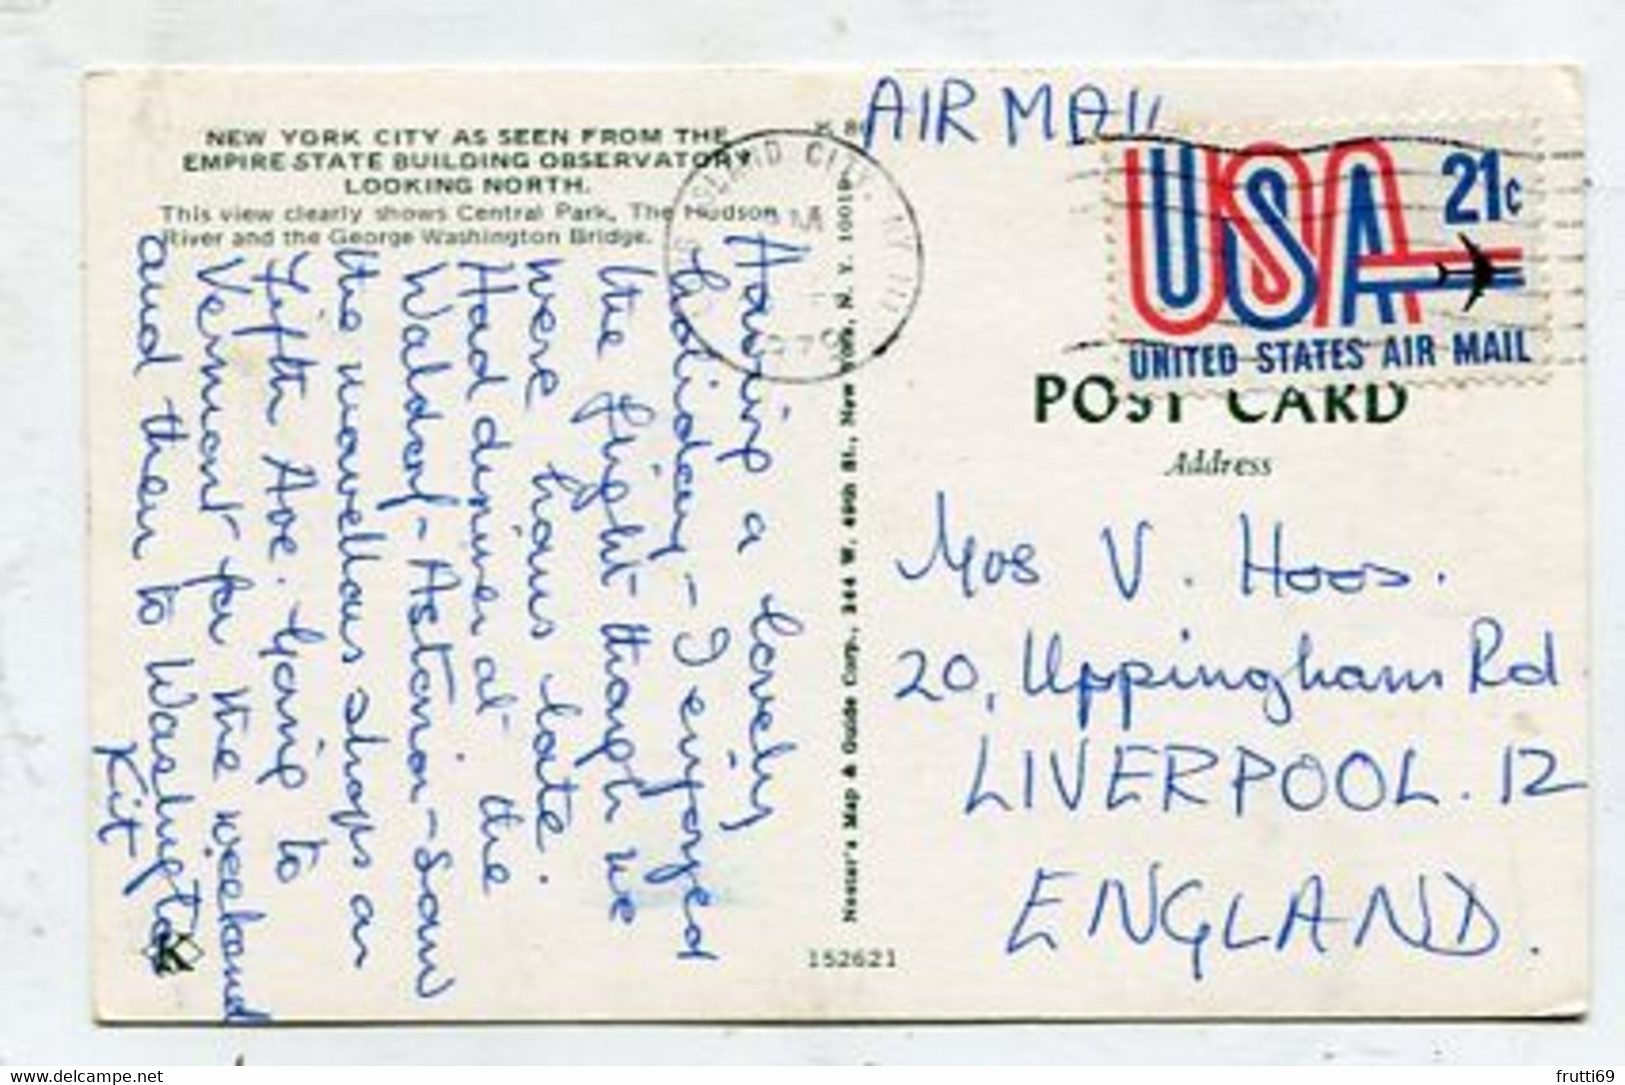 NEW YORK CITY AS SEEN FROM THE
EMPIRE STATE BUILDING OBSERVATORY
LOOKING NORTH.
This view clearly shows Central Park, The Hudson
River and the George Washington Bridge.
Having a lovely
holiday - I enjoyed
the flight though we
were hours late.
Had dinner at the
Waldorf - Astoria - Saw
the marvellous shops on
Fifth Ave. Going to
Vermont for the weekend
and then to Washington
Kit
Nester's Map & Guide Corp., 244 W. 49th St., New York, N. Y. 10019
152621
ISLAND CITY, NY
PM
AIR MAIL
USA 21c
UNITED STATES AIR MAIL
POST CARD
Address
Mrs V. Hoos.
20, Uppingham Rd
LIVERPOOL. 12
ENGLAND.
frutti69
delcampe.net